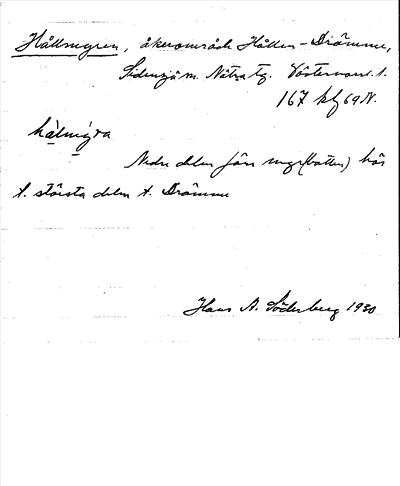 Hållmyren, åkerområde Hållen - Drömme,
Sidensjö sn. Nätra tg. Västernorrl. l.
167 kf 69 N.
hålmýra
Nedre delen före myr (botten) hör
t. största delen t. Drömme
Hans A. Söderberg 1930